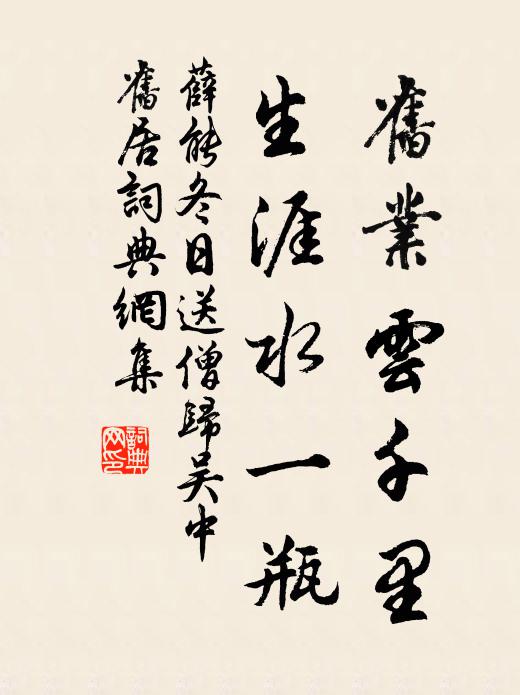 舊業雲千里
生涯水一瓶
薛能冬日送僧歸吴中
舊居詞典網集
詞典
网印